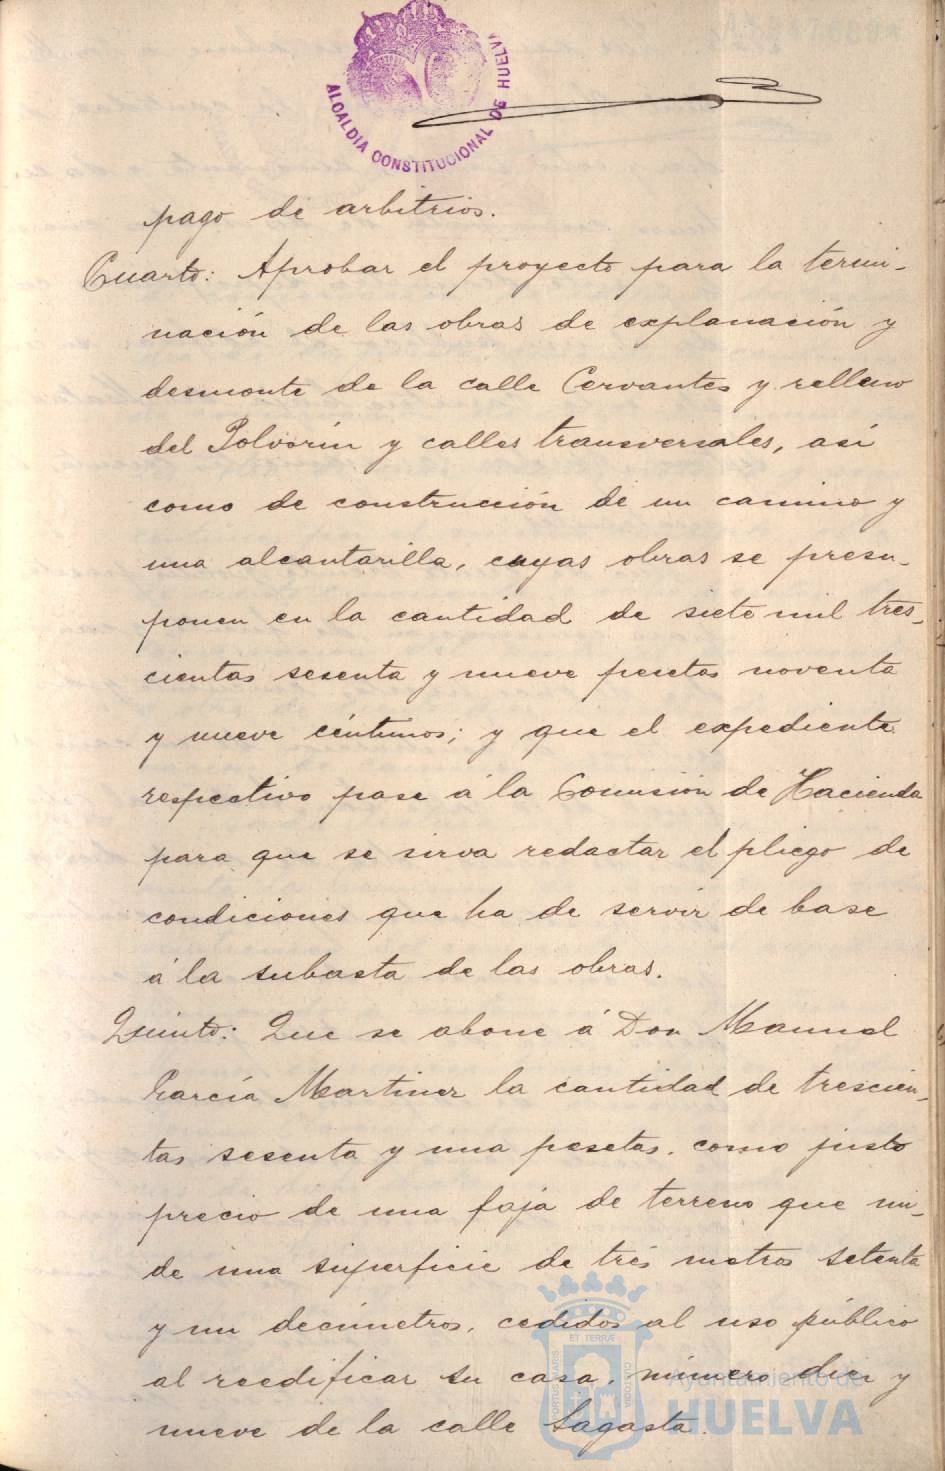 ALCALDIA CONSTITUCIONAL DE HUELVA
pago de arbitrios.
Cuarto: Aprobar el proyecto para la termi-
nación de las obras de explanación y
desmonte de la calle Cervantes y relleno
del Polvorín y calles transversales, así
como de construcción de un camino y
una alcantarilla, cuyas obras se presu-
ponen en la cantidad de siete mil tres-
cientas sesenta y nueve pesetas noventa
y nueve céntimos; y que el expediente
respectivo pase á la Comisión de Hacienda
para que se sirva redactar el pliego de
condiciones que ha de servir de base
á la subasta de las obras.
Quinto: Que se abone á Don Manuel
García Martinez la cantidad de trescien-
tas sesenta y una pesetas, como justo
precio de una faja de terreno que mi-
de una superficie de tres metros setenta
y un decímetros, cedidos al uso público
al reedificar su casa, número diez y
nueve de la calle Sagasta.
PORTUS MARIS
ET TERRÆ
CUSTODIA
Ayuntamiento de
HUELVA